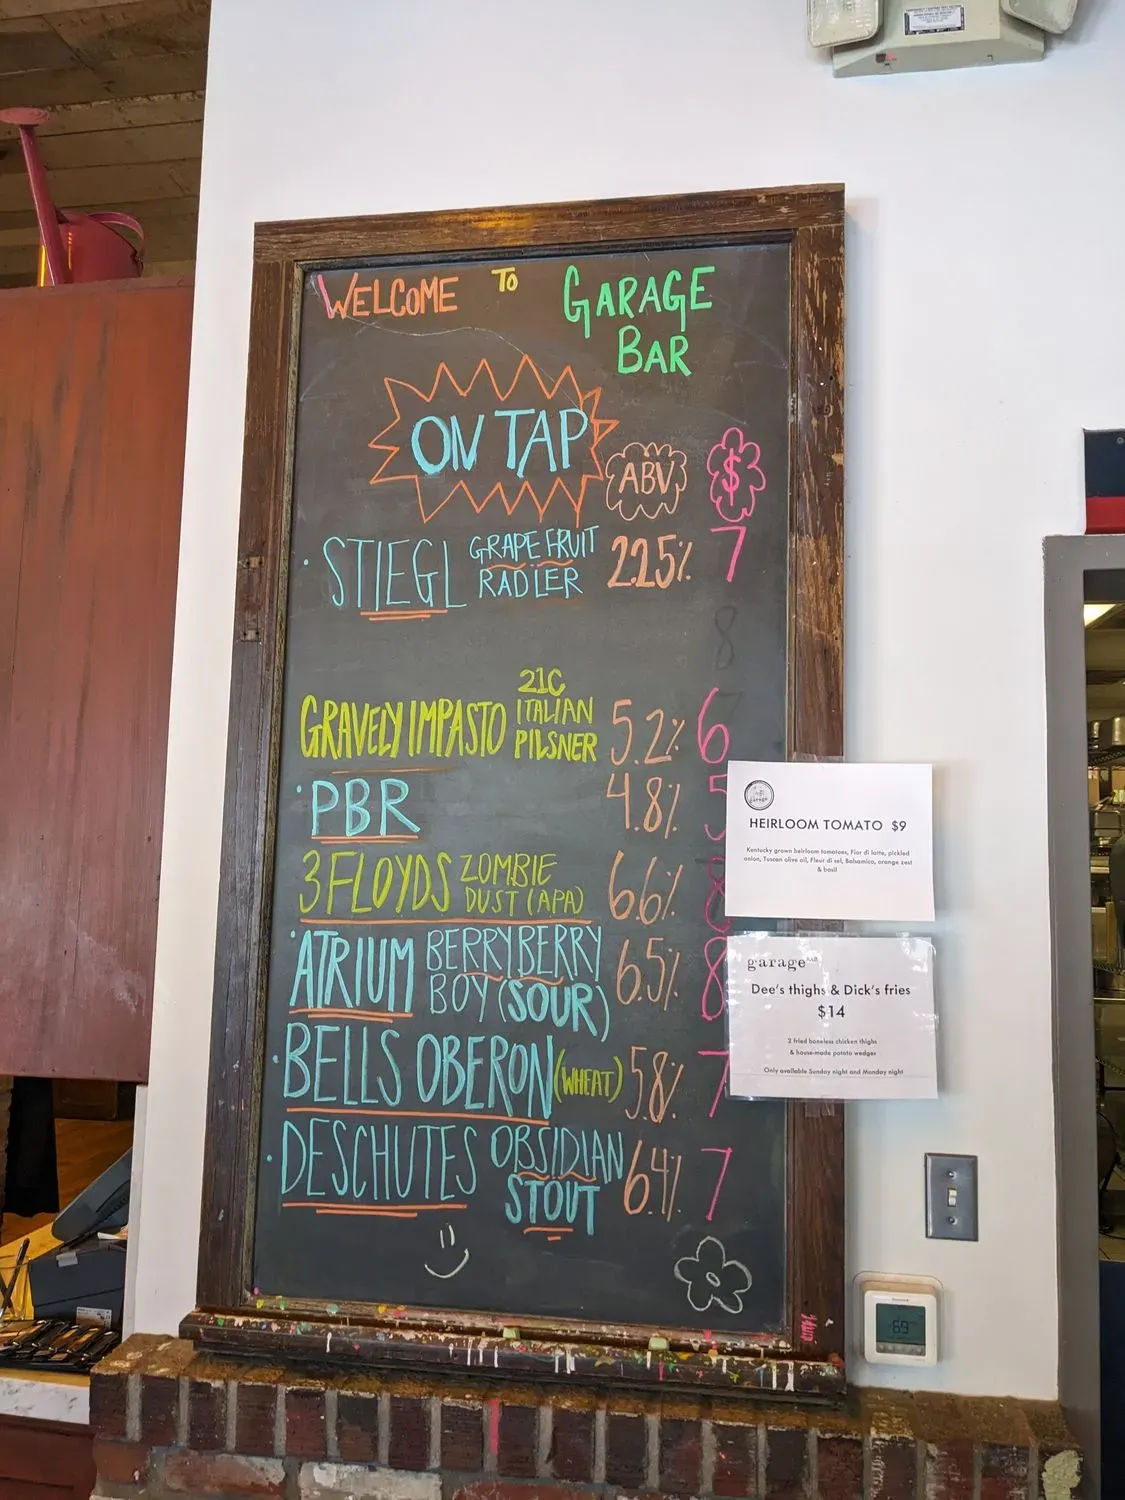 WELCOME TO GARAGE
BAR
ON TAP
ABV $
STIEGL GRAPEFRUIT RADLER 2.25% 7
8
GRAVELY IMPASTO 21C ITALIAN PILSNER 5.2% 6
PBR 4.8% 5
3 FLOYDS ZOMBIE DUST (APA) 6.6% 8
ATRIUM BERRY BERRY BOY (SOUR) 6.5% 8
BELLS OBERON (WHEAT) 5.8% 7
DESCHUTES OBSIDIAN STOUT 6.4% 7
garage
HEIRLOOM TOMATO $9
Kentucky grown heirloom tomatoes, Fior di latte, pickled
onion, Tuscan olive oil, Fleur di sel, Balsamico, orange zest
& basil
garage BAR
Dee's thighs & Dick's fries
$14
2 fried boneless chicken thighs
& house-made potato wedges
Only available Sunday night and Monday night
69